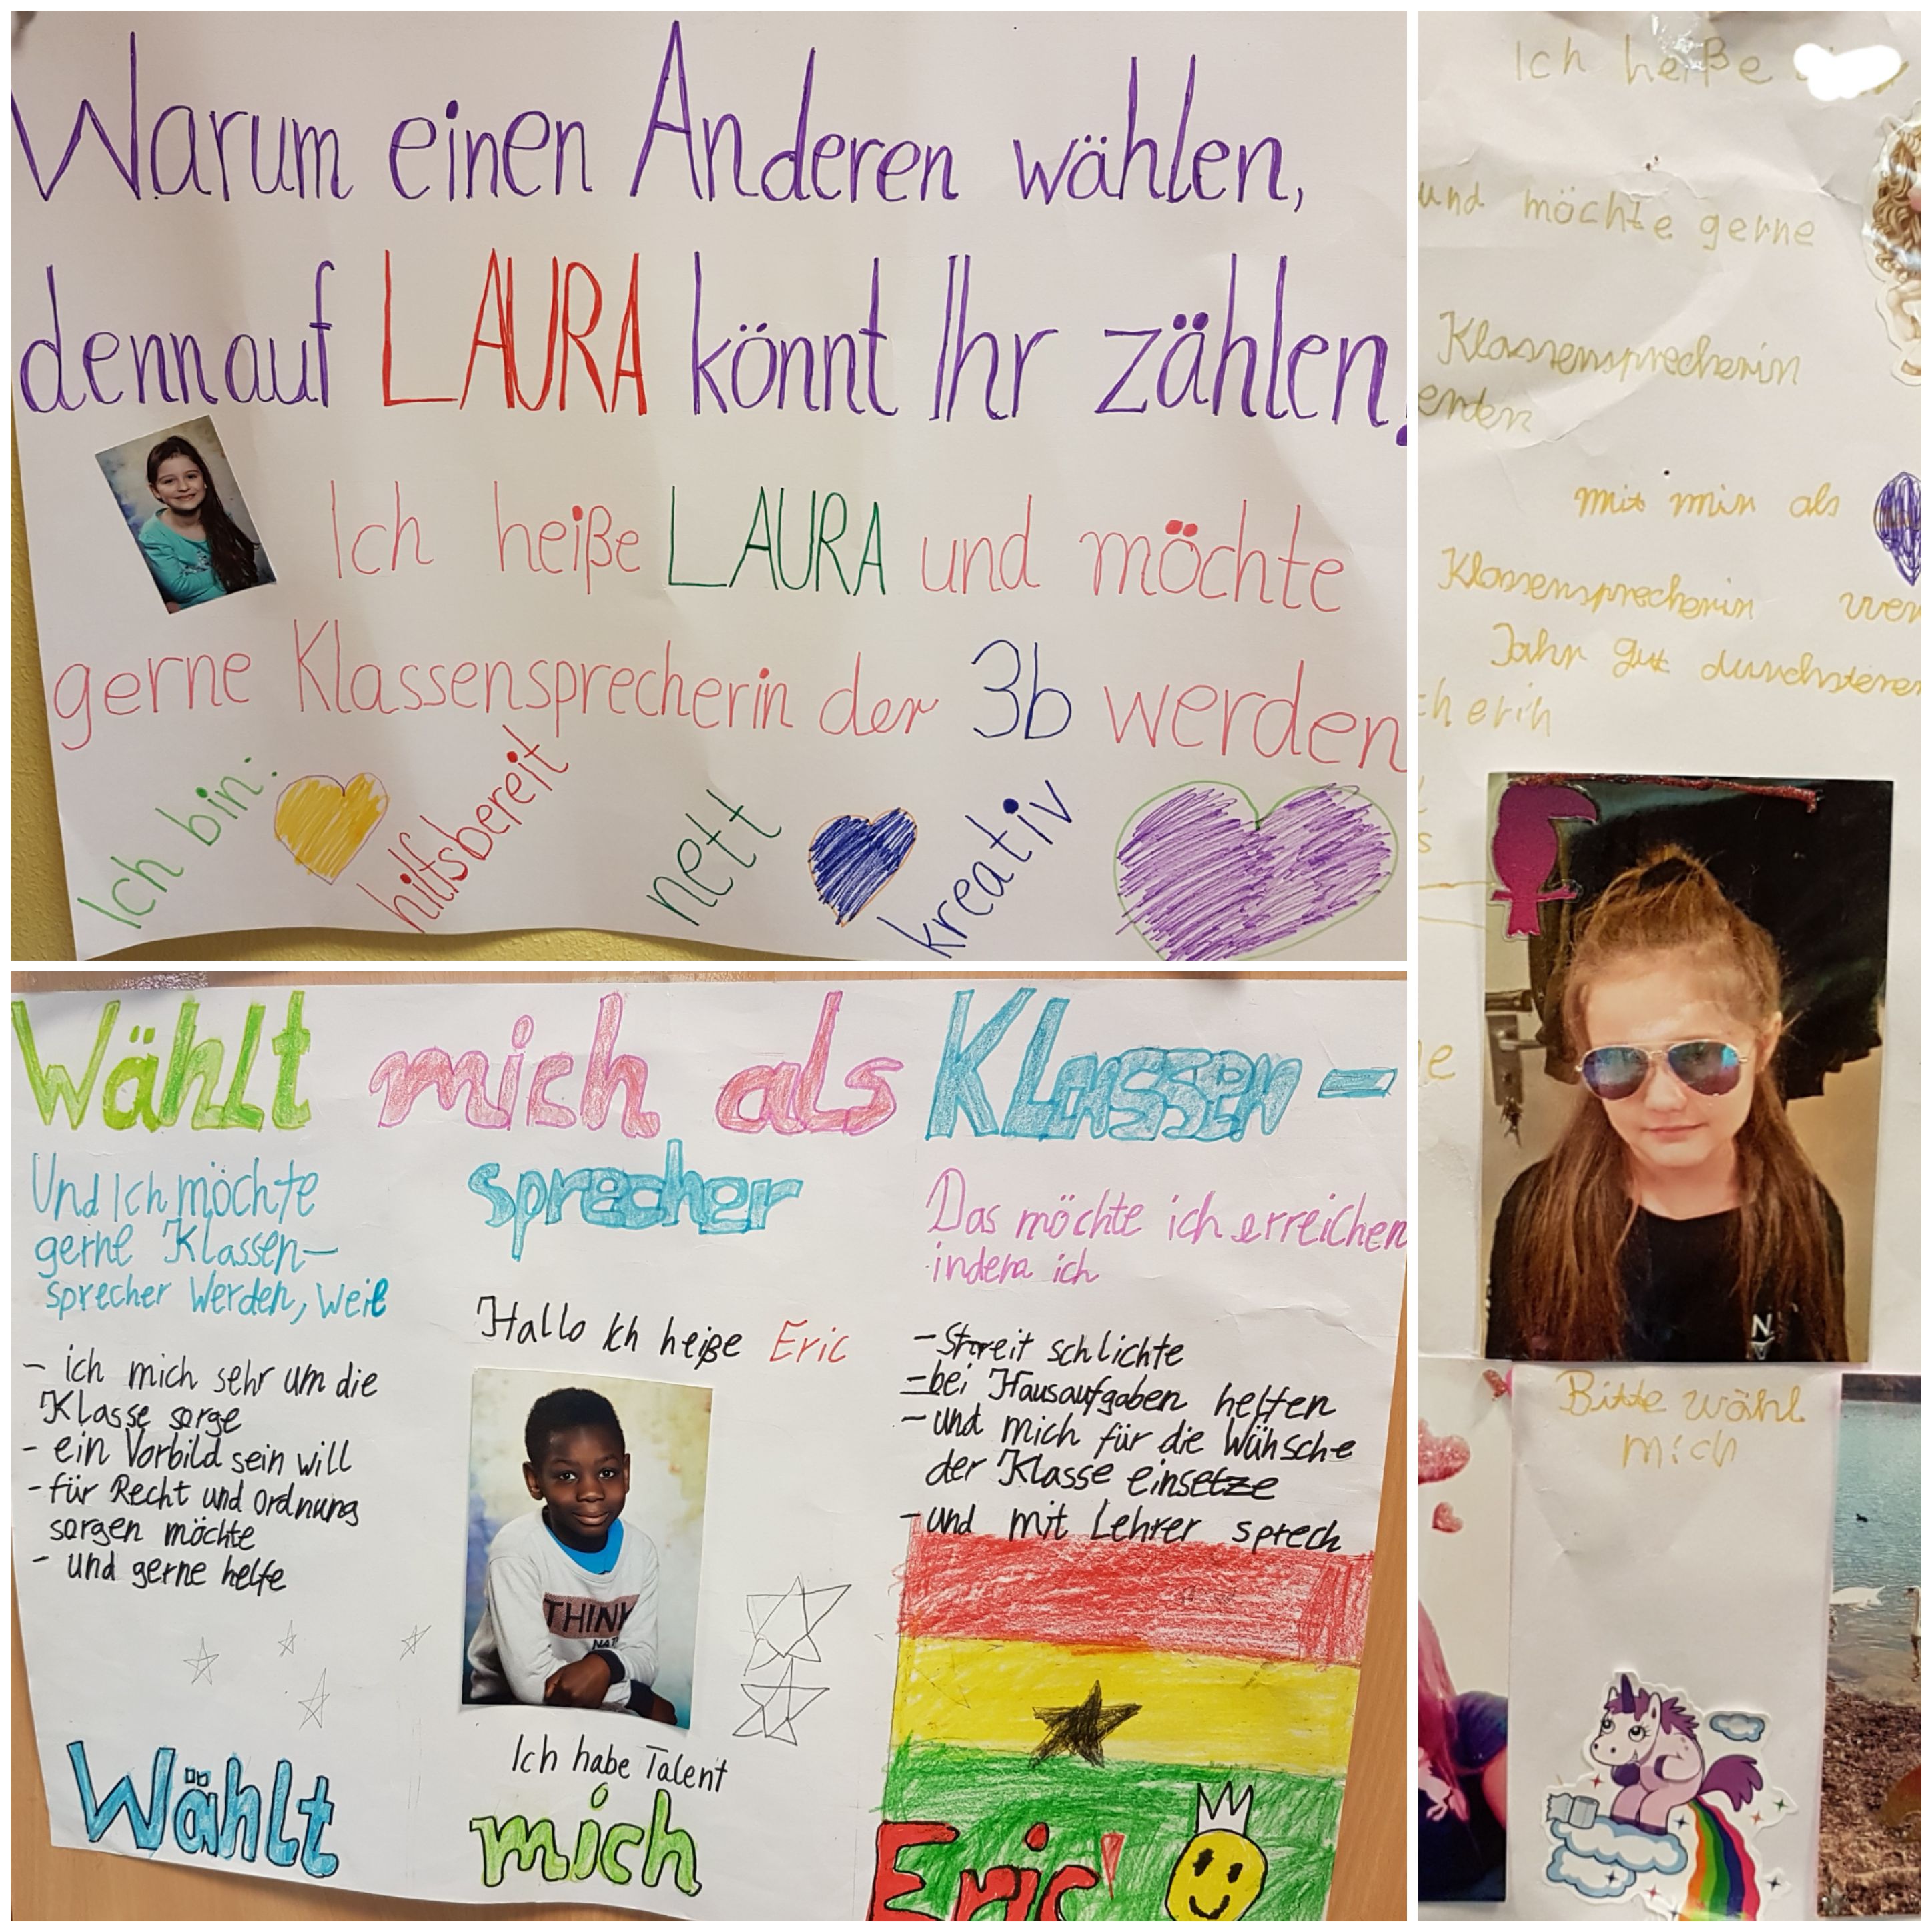 Warum einen Anderen wählen,
denn auf LAURA könnt Ihr zählen!
Ich heiße LAURA und möchte
gerne Klassensprecherin der 3b werden
Ich bin: hilfsbereit nett kreativ
Ich heiße
und möchte gerne
Klassensprecherin
erden
mit mir als
Klassensprecherin wer
Jahr gut
cherin
Bitte wähl
mich
Wählt mich als Klassen-
sprecher
Und Ich möchte
gerne Klassen-
sprecher Werden, weil
- ich mich sehr um die
Klasse sorge
- ein Vorbild sein will
- für Recht und Ordnung
sorgen möchte
- und gerne helfe
Hallo Ich heiße Eric
THINK
Ich habe Talent
Das möchte ich erreichen
indem ich
- Streit schlichte
- bei Hausaufgaben helfen
- und mich für die Wünsche
der Klasse einsetze
- und mit Lehrer sprech
Wählt mich
Eric!